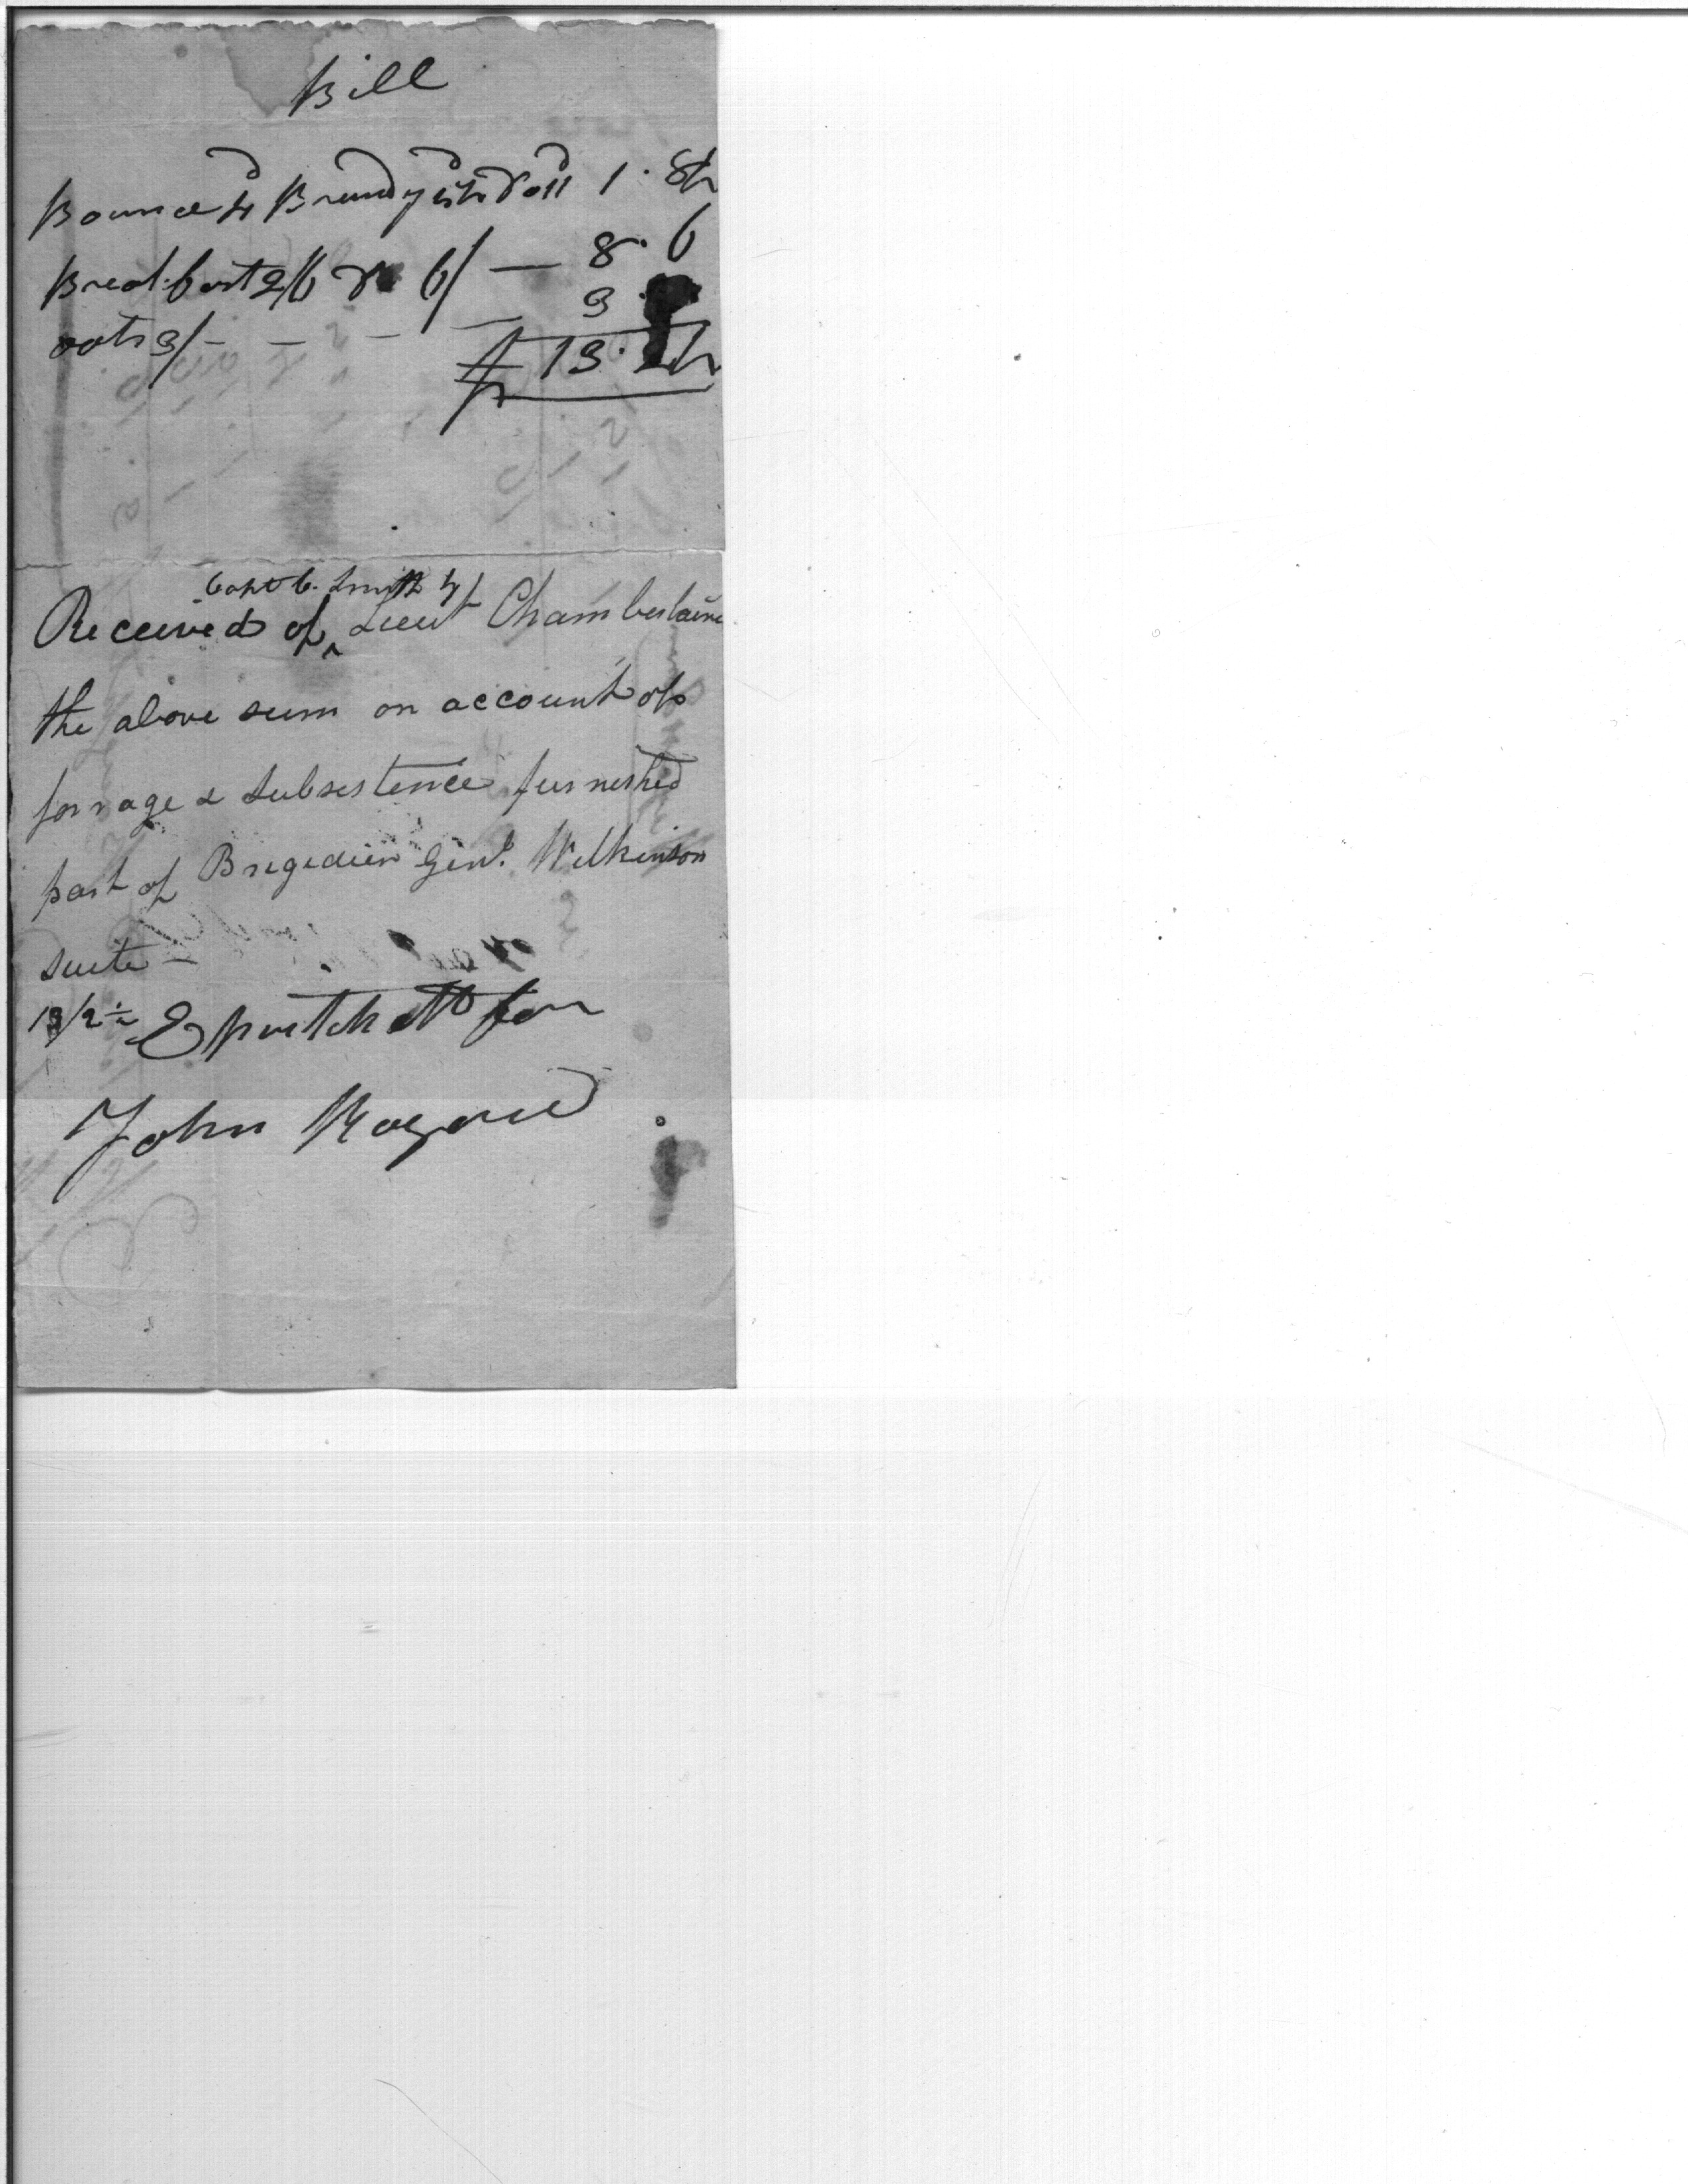 Bill
Bounce 4d Brandy d do 11d 1 . 8½
Breakfast 2/6 do 6/ — 8 . 6
oats 3/ - - - — 3
£ 13 . 2½
Capt C. Smith by
Received of ^ Lieut Chamberlaine
the above sum on account of
forrage & Subsistence furnished
part of Brigedeer Genl. Wilkinson
suite —
13/2½ E pritchett for
John